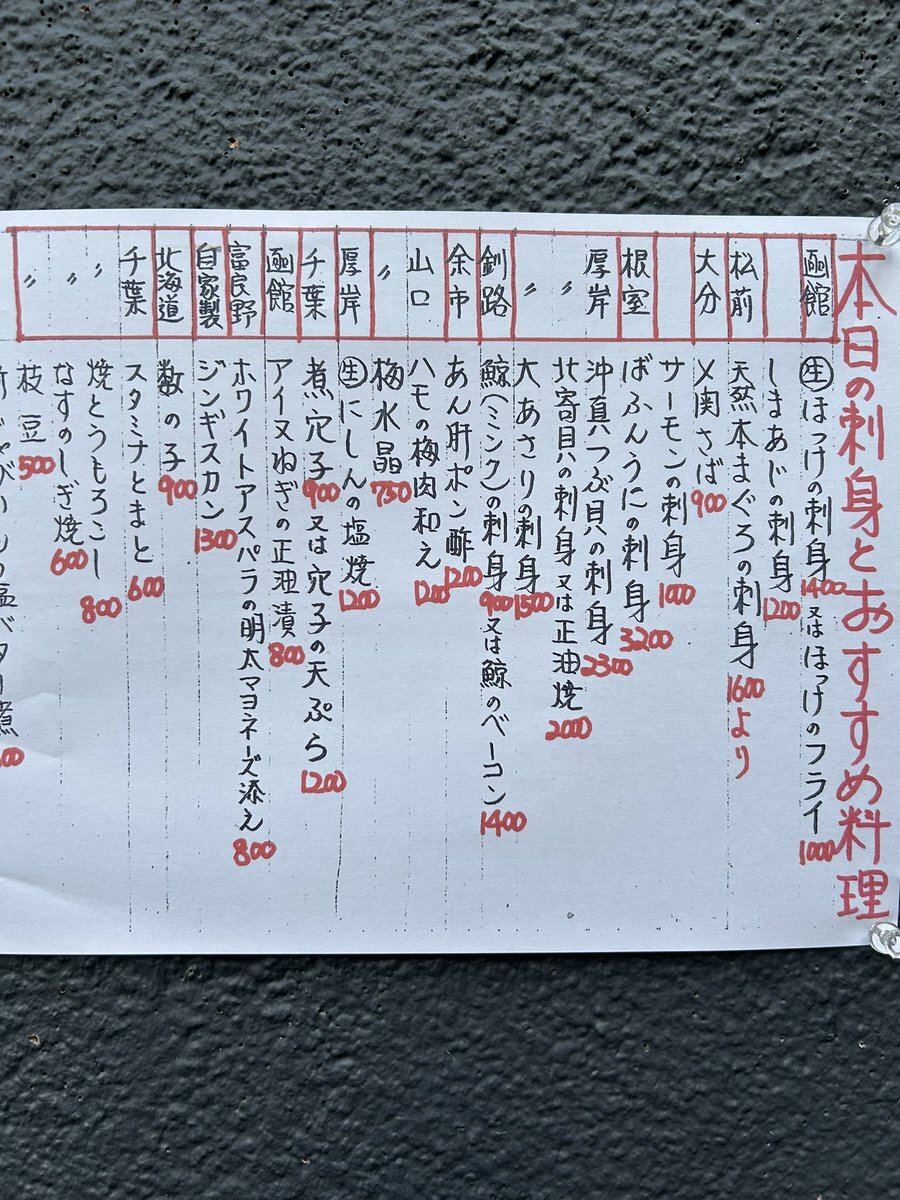 本日の刺身とおすすめ料理
函館 生ほっけの刺身1400又はほっけのフライ1000
しまあじの刺身1200
松前 天然本まぐろの刺身1600より
大分 〆関さば900
サーモンの刺身1000
根室 ばふんうにの刺身3200
厚岸 沖真つぶ貝の刺身2300
〃 北寄貝の刺身又は正油焼2000
〃 大あさりの刺身1500
釧路 鯨(ミンク)の刺身900又は鯨のベーコン1400
余市 あん肝ポン酢1200
山口 ハモの梅肉和え1200
〃 梅水晶750
厚岸 生にしんの塩焼1200
千葉 煮穴子900又は穴子の天ぷら1200
函館 アイヌねぎの正油漬800
富良野 ホワイトアスパラの明太マヨネーズ添え800
自家製 ジンギスカン1300
北海道 数の子900
千葉 スタミナとまと600
〃 焼とうもろこし800
〃 なすのしぎ焼600
〃 枝豆500